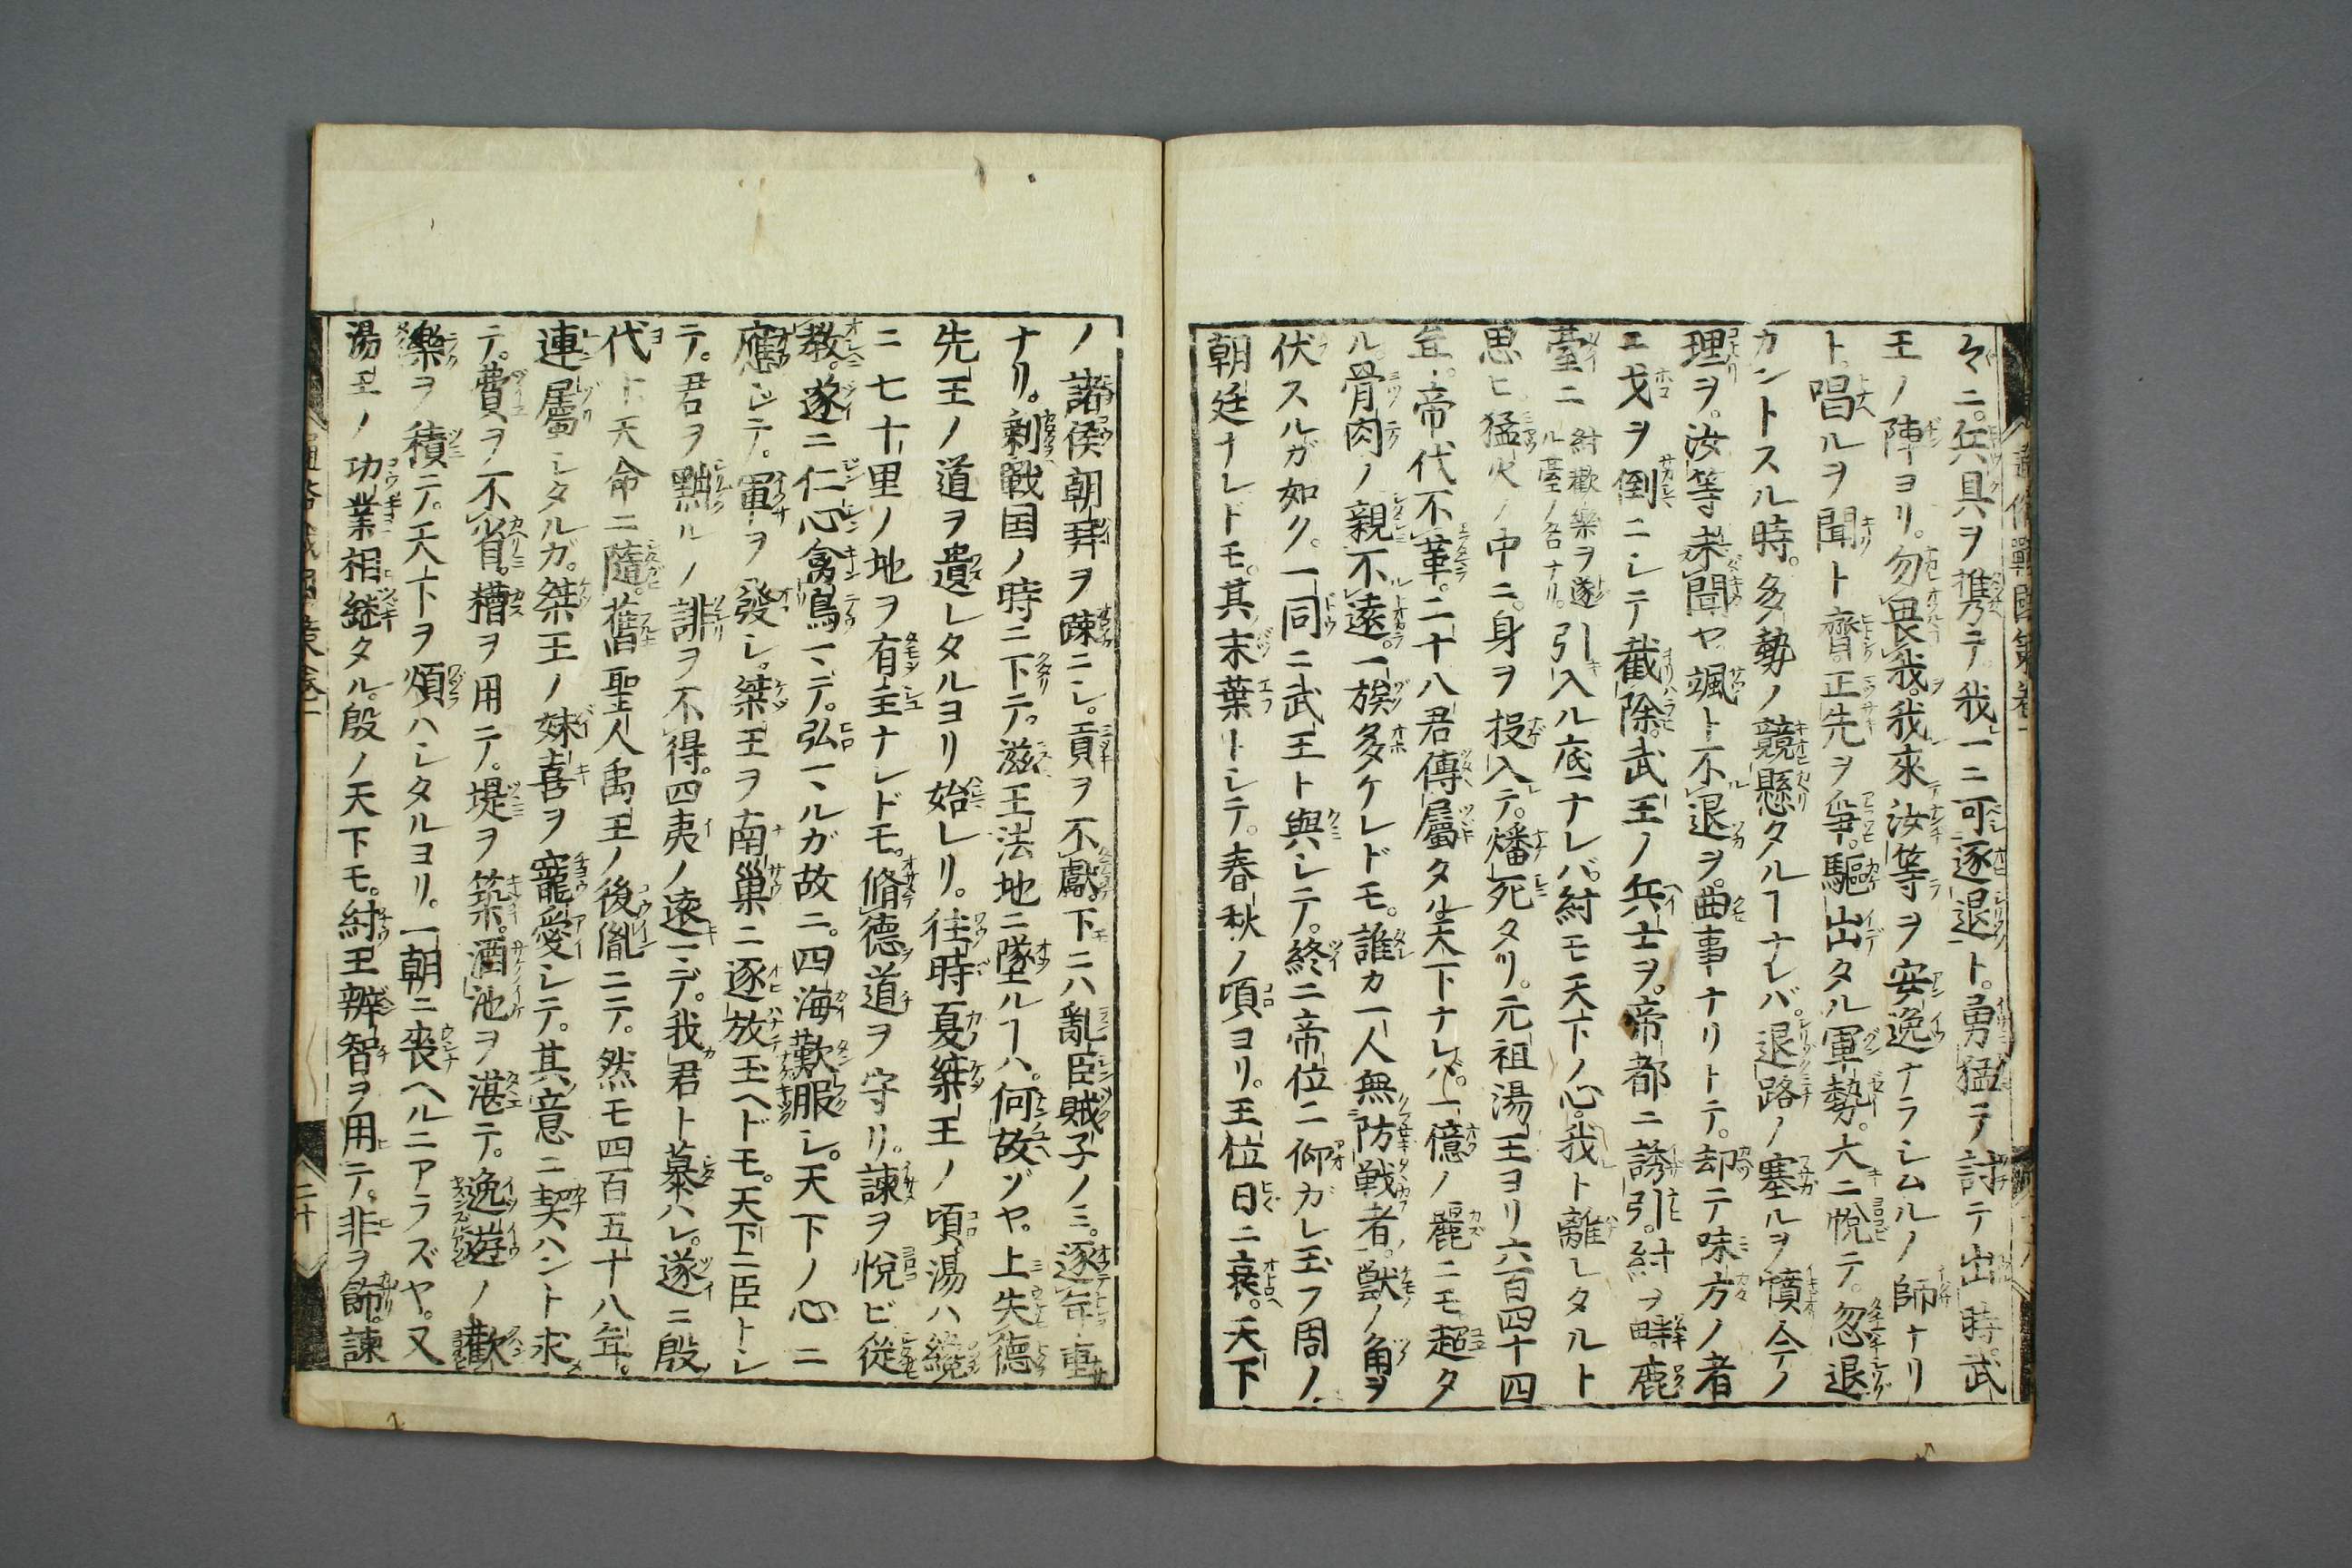 々ニ。兵具ヲ携テ。我一ニ可逐退ト。勇猛テ討テ出時。武
王ノ陣ヨリ。勿畏我。我來汝等ヲ安逸ナラシムルノ師ナリ
ト。唱ルヲ聞ト齊。正先ヲ爭。驅出タル軍勢。大ニ悅テ。忽退
カントスル時。多勢ノ競懸タルヿナレバ。退路ノ塞ルヲ憤今ノ
理ヲ。汝等未聞ヤ。颯ト不退ヲ。曲事ナリトテ。却テ味方ノ者
エ戈ヲ倒ニシテ截除。武王ノ兵士ヲ。帝都ニ誘引。紂ヲ畤。鹿
臺ニ紂歡樂ヲ遂
ル臺ノ名ナリ。引入ル底ナレバ。紂モ天下ノ心。我ト離レタルト
思ヒ猛火ノ中ニ。身ヲ投入テ。燔死タリ。元祖湯王ヨリ六百四十四
年。帝代不革。二十八君傳屬タル天下ナレバ。一億ノ麗ニモ。超タ
ル。骨肉ノ親不遠。一族多ケレドモ。誰カ一人無防戰者。獸ノ角ヲ
伏スルガ如ク。一同ニ武王ト與シテ。終ニ帝位ニ仰ガレ玉フ周ノ
朝廷ナレドモ。其末葉トシテ。春秋ノ項ヨリ。王位日ニ衰。天下
ノ諸侯朝拜ヲ疎ニシ。貢ヲ不獻。下ニハ亂臣賊子ノミ。逐年重
ナリ。剩戰国ノ時ニ下テ。滋王法地ニ墜ルヿハ。何故ゾヤ。上失德
先王ノ道ヲ遺レタルヨリ始レリ。往時夏ノ桀王ノ頃湯ハ纔
ニ七十里ノ地ヲ有主ナレドモ。脩德道ヲ守リ。諫ヲ悅ビ從
教。遂ニ仁心禽鳥マデ。弘マルガ故ニ。四海歎服シ。天下ノ心ニ
應ジテ。軍ヲ發シ。桀王ヲ南巢ニ逐放玉ヘドモ。天下ニ臣トシ
テ。君ヲ黜ルノ誹ヲ不得。四夷ノ遠マデ。我君ト慕ハレ。遂ニ殷
代ト天命ニ隨。舊聖人禹王ノ後胤ニテ。然モ四百五十八年。
連屬シタルガ。桀王ノ妺喜ヲ寵愛シテ。其意ニ契ハント求
テ。費ヲ不省。糟ヲ用ニテ。堤ヲ築。酒池ヲ湛テ。逸遊ノ歡
樂ヲ積ニテ。天下ヲ煩ハシタルヨリ。一朝ニ喪ヘルニアラズヤ。又
湯王ノ功業相繼タル。殷ノ天下モ。紂王辨智ヲ用ニテ。非ヲ飾。諫
二十